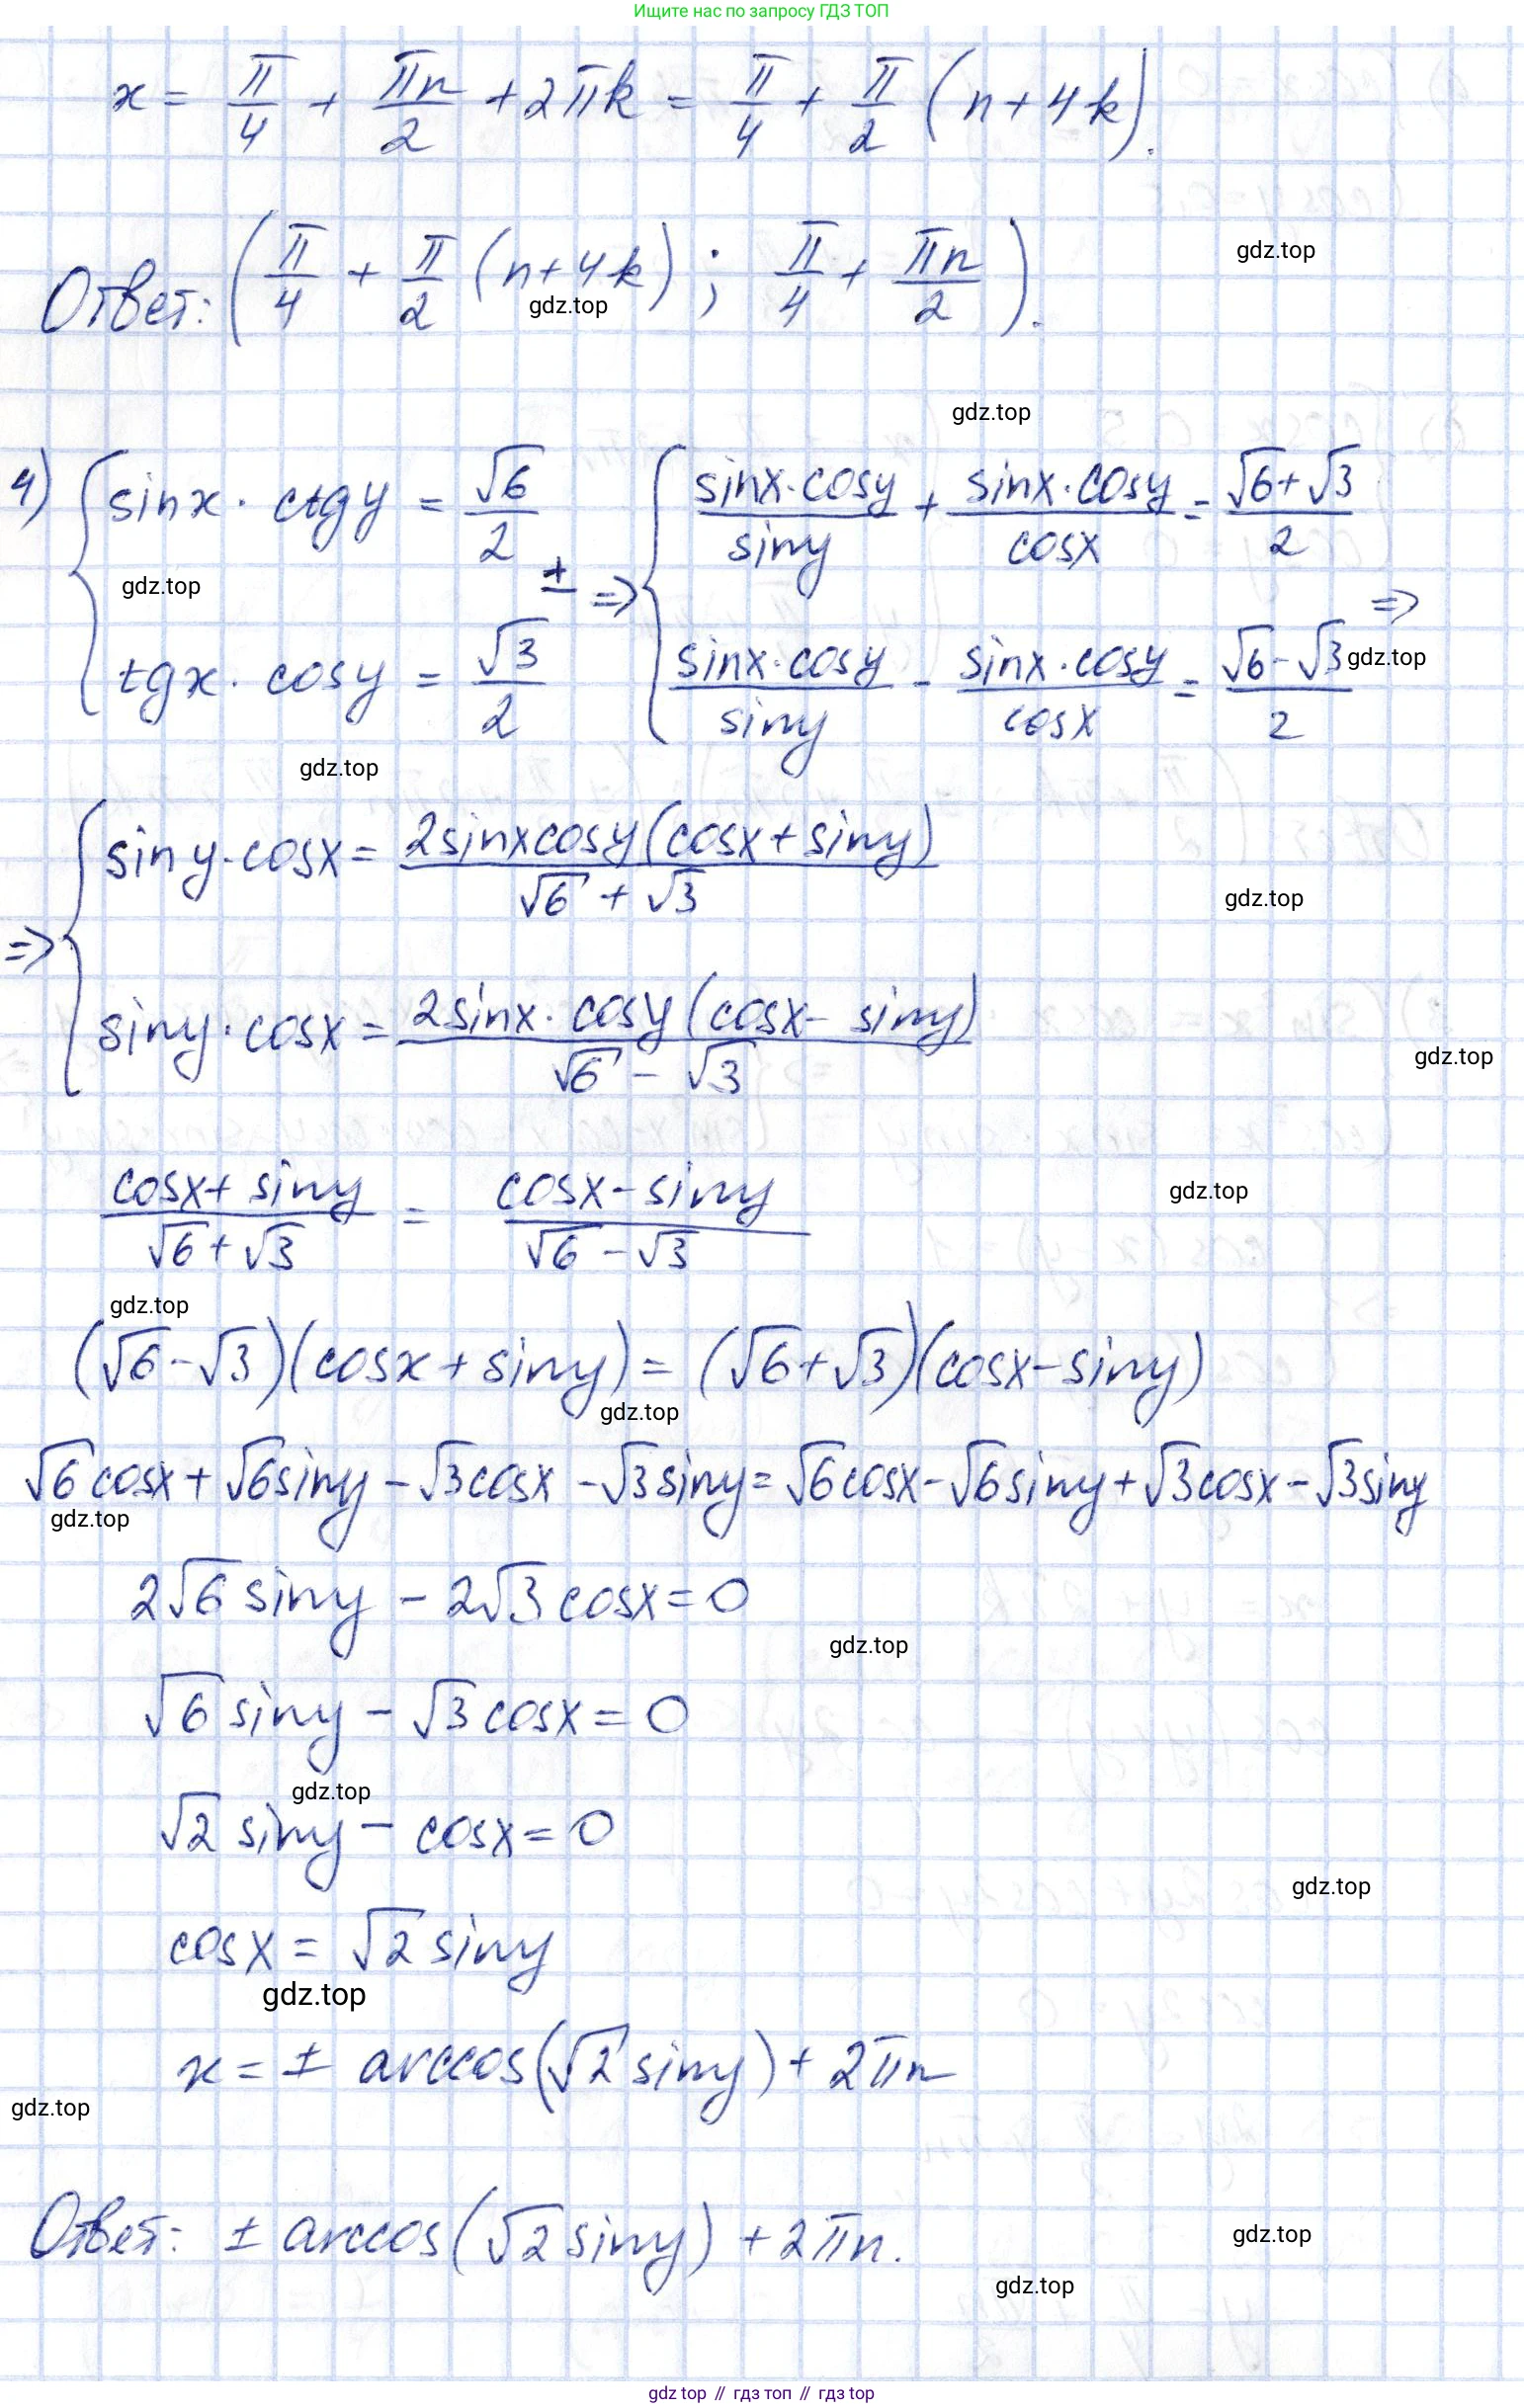 Ищите нас по запросу ГДЗ ТОП
x = π/4 + πn/2 + 2πk = π/4 + π/2 (n + 4k).
gdz.top
Ответ: (π/4 + π/2 (n + 4k) ; π/4 + πn/2).
gdz.top
gdz.top
4) { sinx · ctgy = √6/2 ± => { sinx·cosy/siny + sinx·cosy/cosx = (√6+√3)/2 =>
gdz.top
tgx · cosy = √3/2 sinx·cosy/siny - sinx·cosy/cosx = (√6-√3)/2
gdz.top
gdz.top
=> { siny·cosx = 2sinxcosy(cosx+siny)/(√6+√3)
gdz.top
siny·cosx = 2sinx·cosy(cosx-siny)/(√6-√3)
gdz.top
(cosx+siny)/(√6+√3) = (cosx-siny)/(√6-√3)
gdz.top
gdz.top
(√6-√3)(cosx+siny) = (√6+√3)(cosx-siny)
gdz.top
√6cosx+√6siny-√3cosx-√3siny=√6cosx-√6siny+√3cosx-√3siny
gdz.top
2√6siny - 2√3cosx=0
gdz.top
√6siny - √3cosx=0
gdz.top
√2siny - cosx=0
gdz.top
cosx = √2siny
gdz.top
x = ± arccos(√2siny)+2πn
gdz.top
Ответ: ± arccos(√2siny)+2πn.
gdz.top
gdz.top
gdz top // гдз топ // гдз top